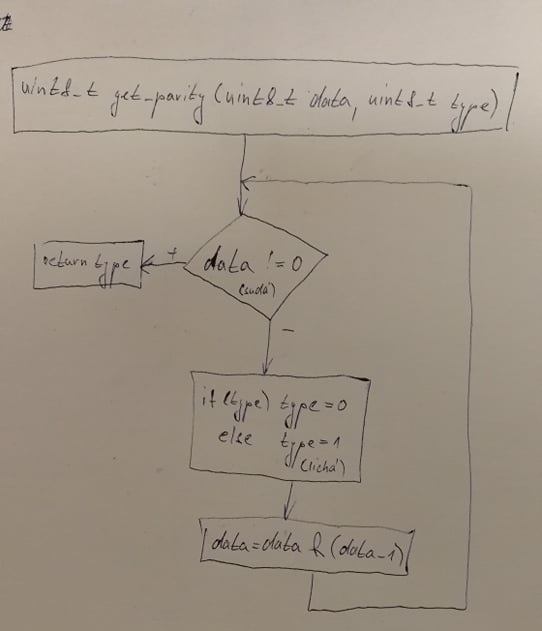 uint8_t get_parity (uint8_t data, uint8_t type)
return type
+
data != 0
(sudá)
-
if (type) type=0
else type=1
(lichá)
data=data & (data-1)